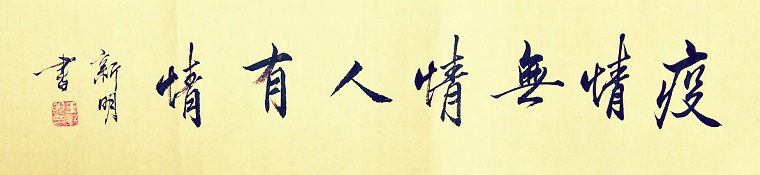 疫情無情人有情
新明
書